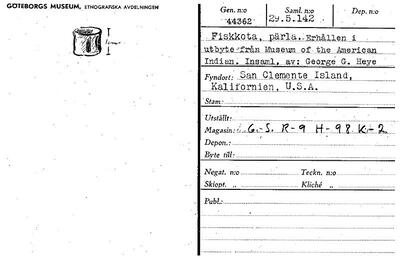 GÖTEBORGS MUSEUM, ETNOGRAFISKA AVDELNINGEN
Gen. n:o 44362
Saml. n:o 29.5.142
Dep. n:o
Fiskkota, pärla. Erhållen i
utbyte från Museum of the American
Indian. Insaml. av: George G. Heye
Fyndort: San Clemente Island,
Kalifornien, U.S.A.
Stam:
Utställt:
Magasin: G.-S. R-9 H-98 K-2
Depon.:
Byte till:
Negat. n:o
Teckn. n:o
Skiopt. „
Kliché „
Publ.: